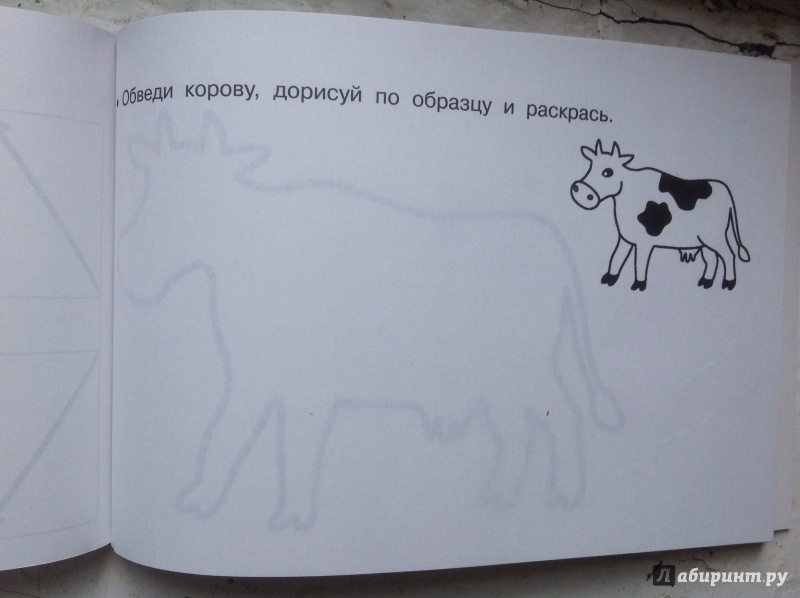 Обведи корову, дорисуй по образцу и раскрась.
Лабиринт.ру